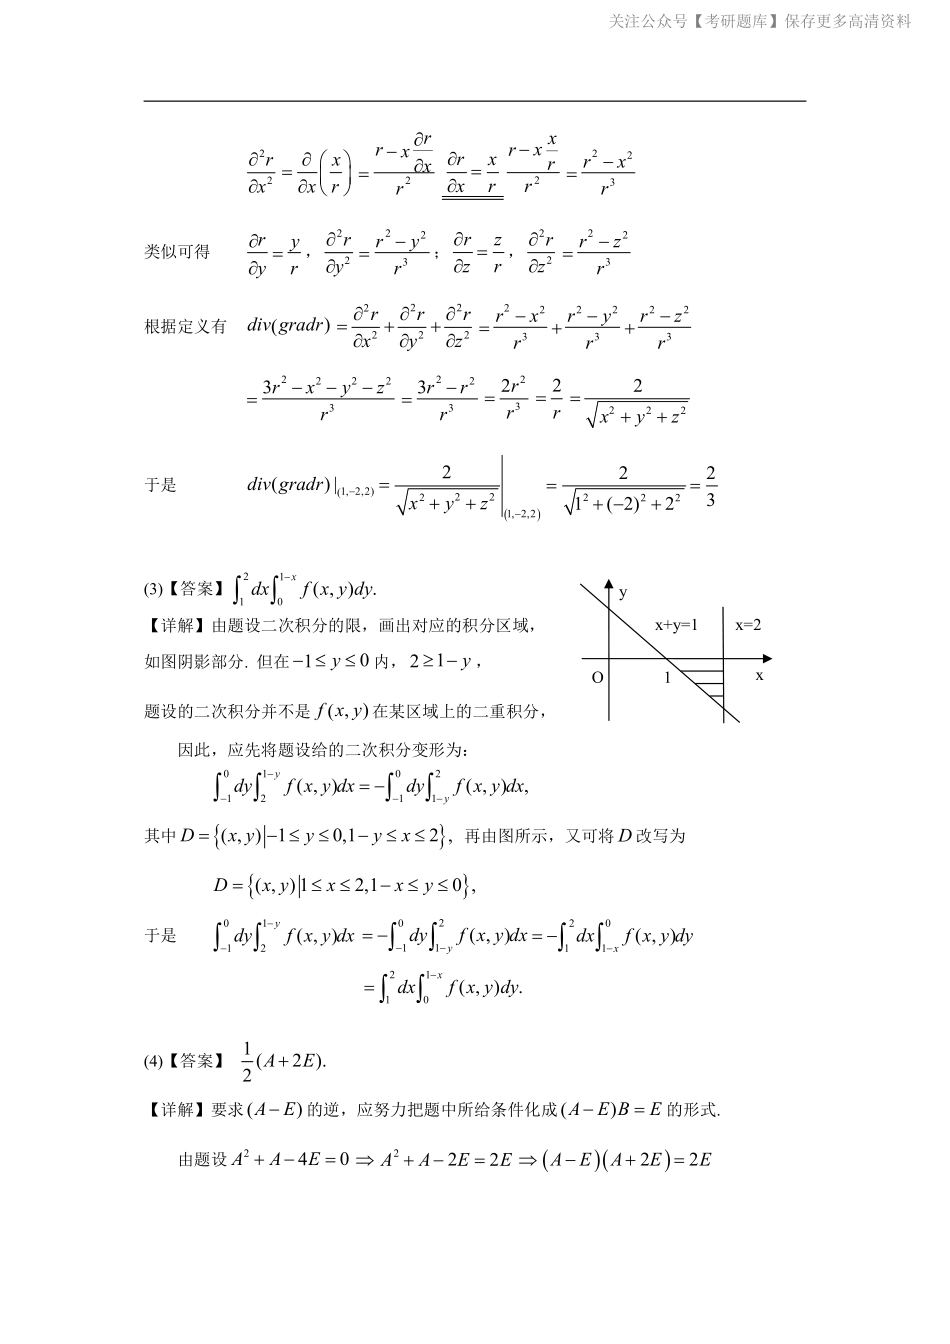 关注公众号【考研题库】保存更多高清资料
∂²r/∂x² = ∂/∂x (x/r) = (r − x ∂r/∂x)/r² ∂r/∂x = x/r (r − x x/r)/r² = (r² − x²)/r³
类似可得 ∂r/∂y = y/r , ∂²r/∂y² = (r² − y²)/r³ ; ∂r/∂z = z/r , ∂²r/∂z² = (r² − z²)/r³
根据定义有 div(gradr) = ∂²r/∂x² + ∂²r/∂y² + ∂²r/∂z² = (r² − x²)/r³ + (r² − y²)/r³ + (r² − z²)/r³
= (3r² − x² − y² − z²)/r³ = (3r² − r²)/r³ = 2r²/r³ = 2/r = 2/√(x² + y² + z²)
于是 div(gradr)|(1,−2,2) = 2/√(x² + y² + z²) |(1,−2,2) = 2/√(1² + (−2)² + 2²) = 2/3
(3)【答案】∫₁² dx ∫₀^(1−x) f(x, y)dy.
【详解】由题设二次积分的限，画出对应的积分区域，
如图阴影部分. 但在 −1 ≤ y ≤ 0 内，2 ≥ 1 − y ，
题设的二次积分并不是 f(x, y) 在某区域上的二重积分，
y
x+y=1 x=2
O 1 x
因此，应先将题设给的二次积分变形为:
∫₋₁⁰ dy ∫₂^(1−y) f(x, y)dx = −∫₋₁⁰ dy ∫_(1−y)^2 f(x, y)dx,
其中 D = {(x, y)|−1 ≤ y ≤ 0,1 − y ≤ x ≤ 2}，再由图所示，又可将 D 改写为
D = {(x, y)|1 ≤ x ≤ 2,1 − x ≤ y ≤ 0},
于是 ∫₋₁⁰ dy ∫₂^(1−y) f(x, y)dx = −∫₋₁⁰ dy ∫_(1−y)^2 f(x, y)dx = −∫₁² dx ∫_(1−x)^0 f(x, y)dy
= ∫₁² dx ∫₀^(1−x) f(x, y)dy.
(4)【答案】 1/2 (A + 2E).
【详解】要求 (A − E) 的逆，应努力把题中所给条件化成 (A − E)B = E 的形式.
由题设 A² + A − 4E = 0 ⇒ A² + A − 2E = 2E ⇒ (A − E)(A + 2E) = 2E